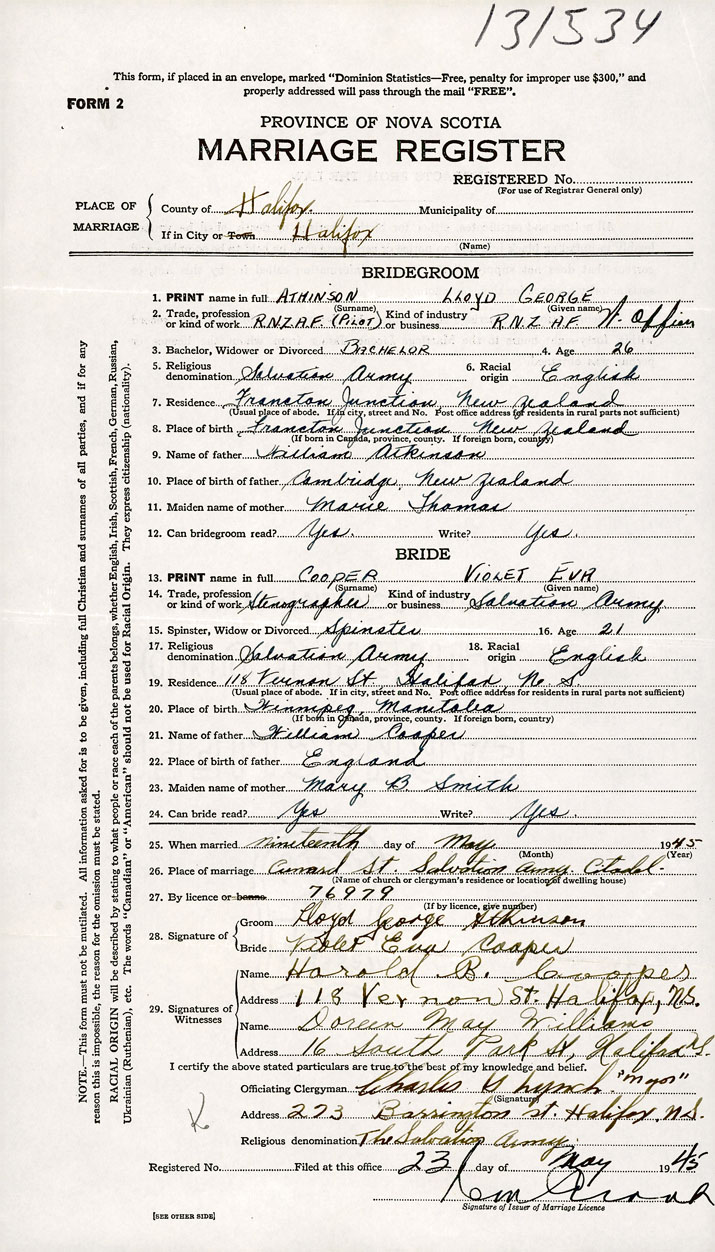 131534
This form, if placed in an envelope, marked "Dominion Statistics—Free, penalty for improper use $300," and
properly addressed will pass through the mail "FREE".
FORM 2
PROVINCE OF NOVA SCOTIA
MARRIAGE REGISTER
REGISTERED No.
(For use of Registrar General only)
PLACE OF MARRIAGE
County of Halifax. Municipality of
If in City or Town Halifax
(Name)
BRIDEGROOM
1. PRINT name in full ATHINSON LLOYD GEORGE
(Surname) (Given name)
2. Trade, profession or kind of work R.N.Z.A.F. (PILOT) Kind of industry or business R.N.Z.A.F. W. Officer
3. Bachelor, Widower or Divorced BACHELOR 4. Age 26
5. Religious denomination Salvation Army 6. Racial origin English
7. Residence Francton Junction, New Zealand
(Usual place of abode. If in city, street and No. Post office address for residents in rural parts not sufficient)
8. Place of birth Francton Junction New Zealand
(If born in Canada, province, county. If foreign born, country)
9. Name of father William Atkinson
10. Place of birth of father Cambridge, New Zealand
11. Maiden name of mother Marie Thomas
12. Can bridegroom read? Yes. Write? Yes.
BRIDE
13. PRINT name in full COOPER VIOLET EVA
(Surname) (Given name)
14. Trade, profession or kind of work Stenographer Kind of industry or business Salvation Army
15. Spinster, Widow or Divorced Spinster 16. Age 21
17. Religious denomination Salvation Army 18. Racial origin English
19. Residence 118 Vernon St. Halifax, N. S.
(Usual place of abode. If in city, street and No. Post office address for residents in rural parts not sufficient)
20. Place of birth Winnipeg, Manitoba
(If born in Canada, province, county. If foreign born, country)
21. Name of father William Cooper
22. Place of birth of father England
23. Maiden name of mother Mary B Smith
24. Can bride read? Yes Write? Yes.
25. When married nineteenth day of May 1945
(Month) (Year)
26. Place of marriage Cunard St. Salvation Army Citadel.
(Name of church or clergyman's residence or location of dwelling house)
27. By licence or banns 76979
(If by licence, give number)
28. Signature of
Groom Lloyd George Atkinson
Bride Violet Eva Cooper
29. Signatures of Witnesses
Name Harold B. Cooper
Address 118 Vernon St. Halifax, N.S.
Name Doreen May Williams
Address 16 South Park St, Halifax N.S.
I certify the above stated particulars are true to the best of my knowledge and belief.
Officiating Clergyman Charles Lynch. "Major"
(Signature)
Address 273 Barrington St. Halifax, N.S.
Religious denomination The Salvation Army.
Registered No. Filed at this office 23 day of May 1945
Signature of Issuer of Marriage Licence
[SEE OTHER SIDE]
NOTE.—This form must not be mutilated. All information asked for is to be given, including full Christian and surnames of all parties, and if for any
reason this is impossible, the reason for the omission must be stated.
RACIAL ORIGIN will be described by stating to what people or race each of the parents belongs, whether English, Irish, Scottish, French, German, Russian,
Ukrainian (Ruthenian), etc. The words "Canadian" or "American" should not be used for Racial Origin. They express citizenship (nationality).